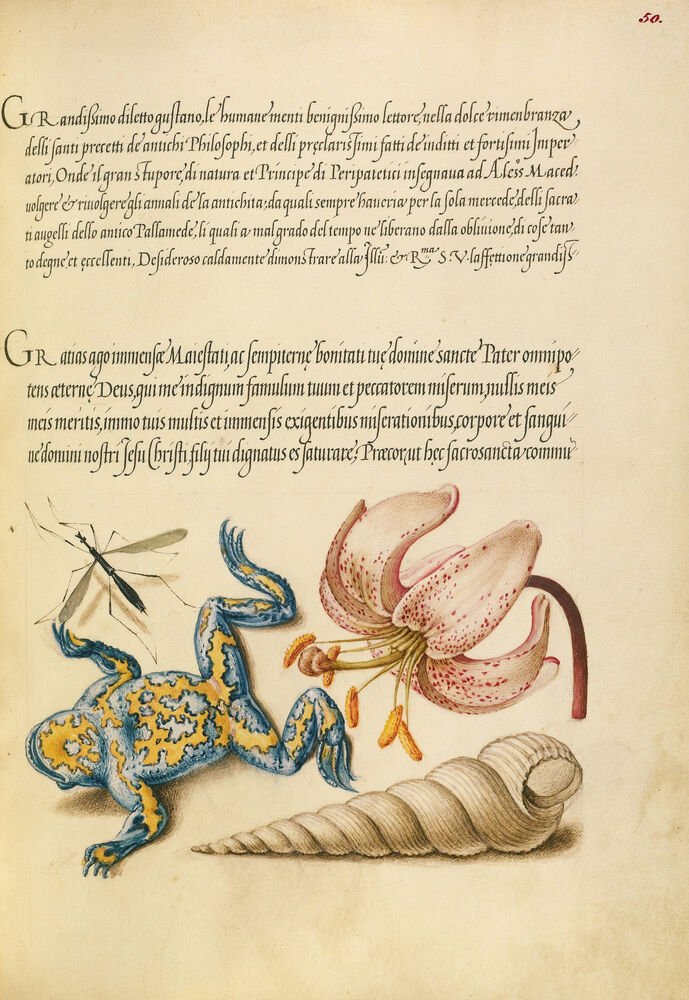 50.
GRandißimo diletto gustano, le humane menti benignißimo lettore, nella dolce rimenbranza
delli santi precetti de antichi Philosophi, et delli pręclarissimi fatti de inditti et fortissimi Imper
atori, Onde il gran stupore, di natura et Principe di Peripatetici insegnaua ad Aless Maced:
uolgere & riuolgere gli annali de la antichita: da quali sempre haueria per la sola mercede, delli sacra
ti augelli dello antico Pallamede, li quali a mal grado del tempo ne liberano dalla obliuione, di cose tan
to degne, et eccellenti, Desideroso caldamente dimonstrare alla Illu: & Rma S. V. l'affettione grandiss
GRatias ago immensæ Maiestati, ac sempiternę bonitati tuę domine sancte Pater omnipo
tens æternę Deus, qui me indignum famulum tuum et peccatorem miserum, nullis meis
meis meritis, immo tuis multis et immensis exigentibus miserationibus, corpore et sangui
ne domini nostri Jesu Christi filij tui dignatus es saturare, Præcor, ut hęc sacrosancta commu